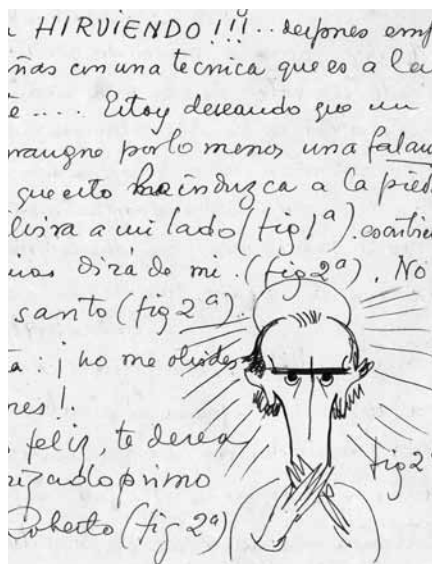 HIRVIENDO!!!.. despues emp
ñas con una tecnica que es a la
e..... Estoy deseando que un
por lo menos una falan
que esto induzca a la pied
a mi lado (fig 1ª).
dirá de mi. (fig 2ª). No
santo (fig 2ª).
: ¡ no me olvides
res!.
feliz, te desea
izado primo
Roberto (fig 2ª)
fig 2